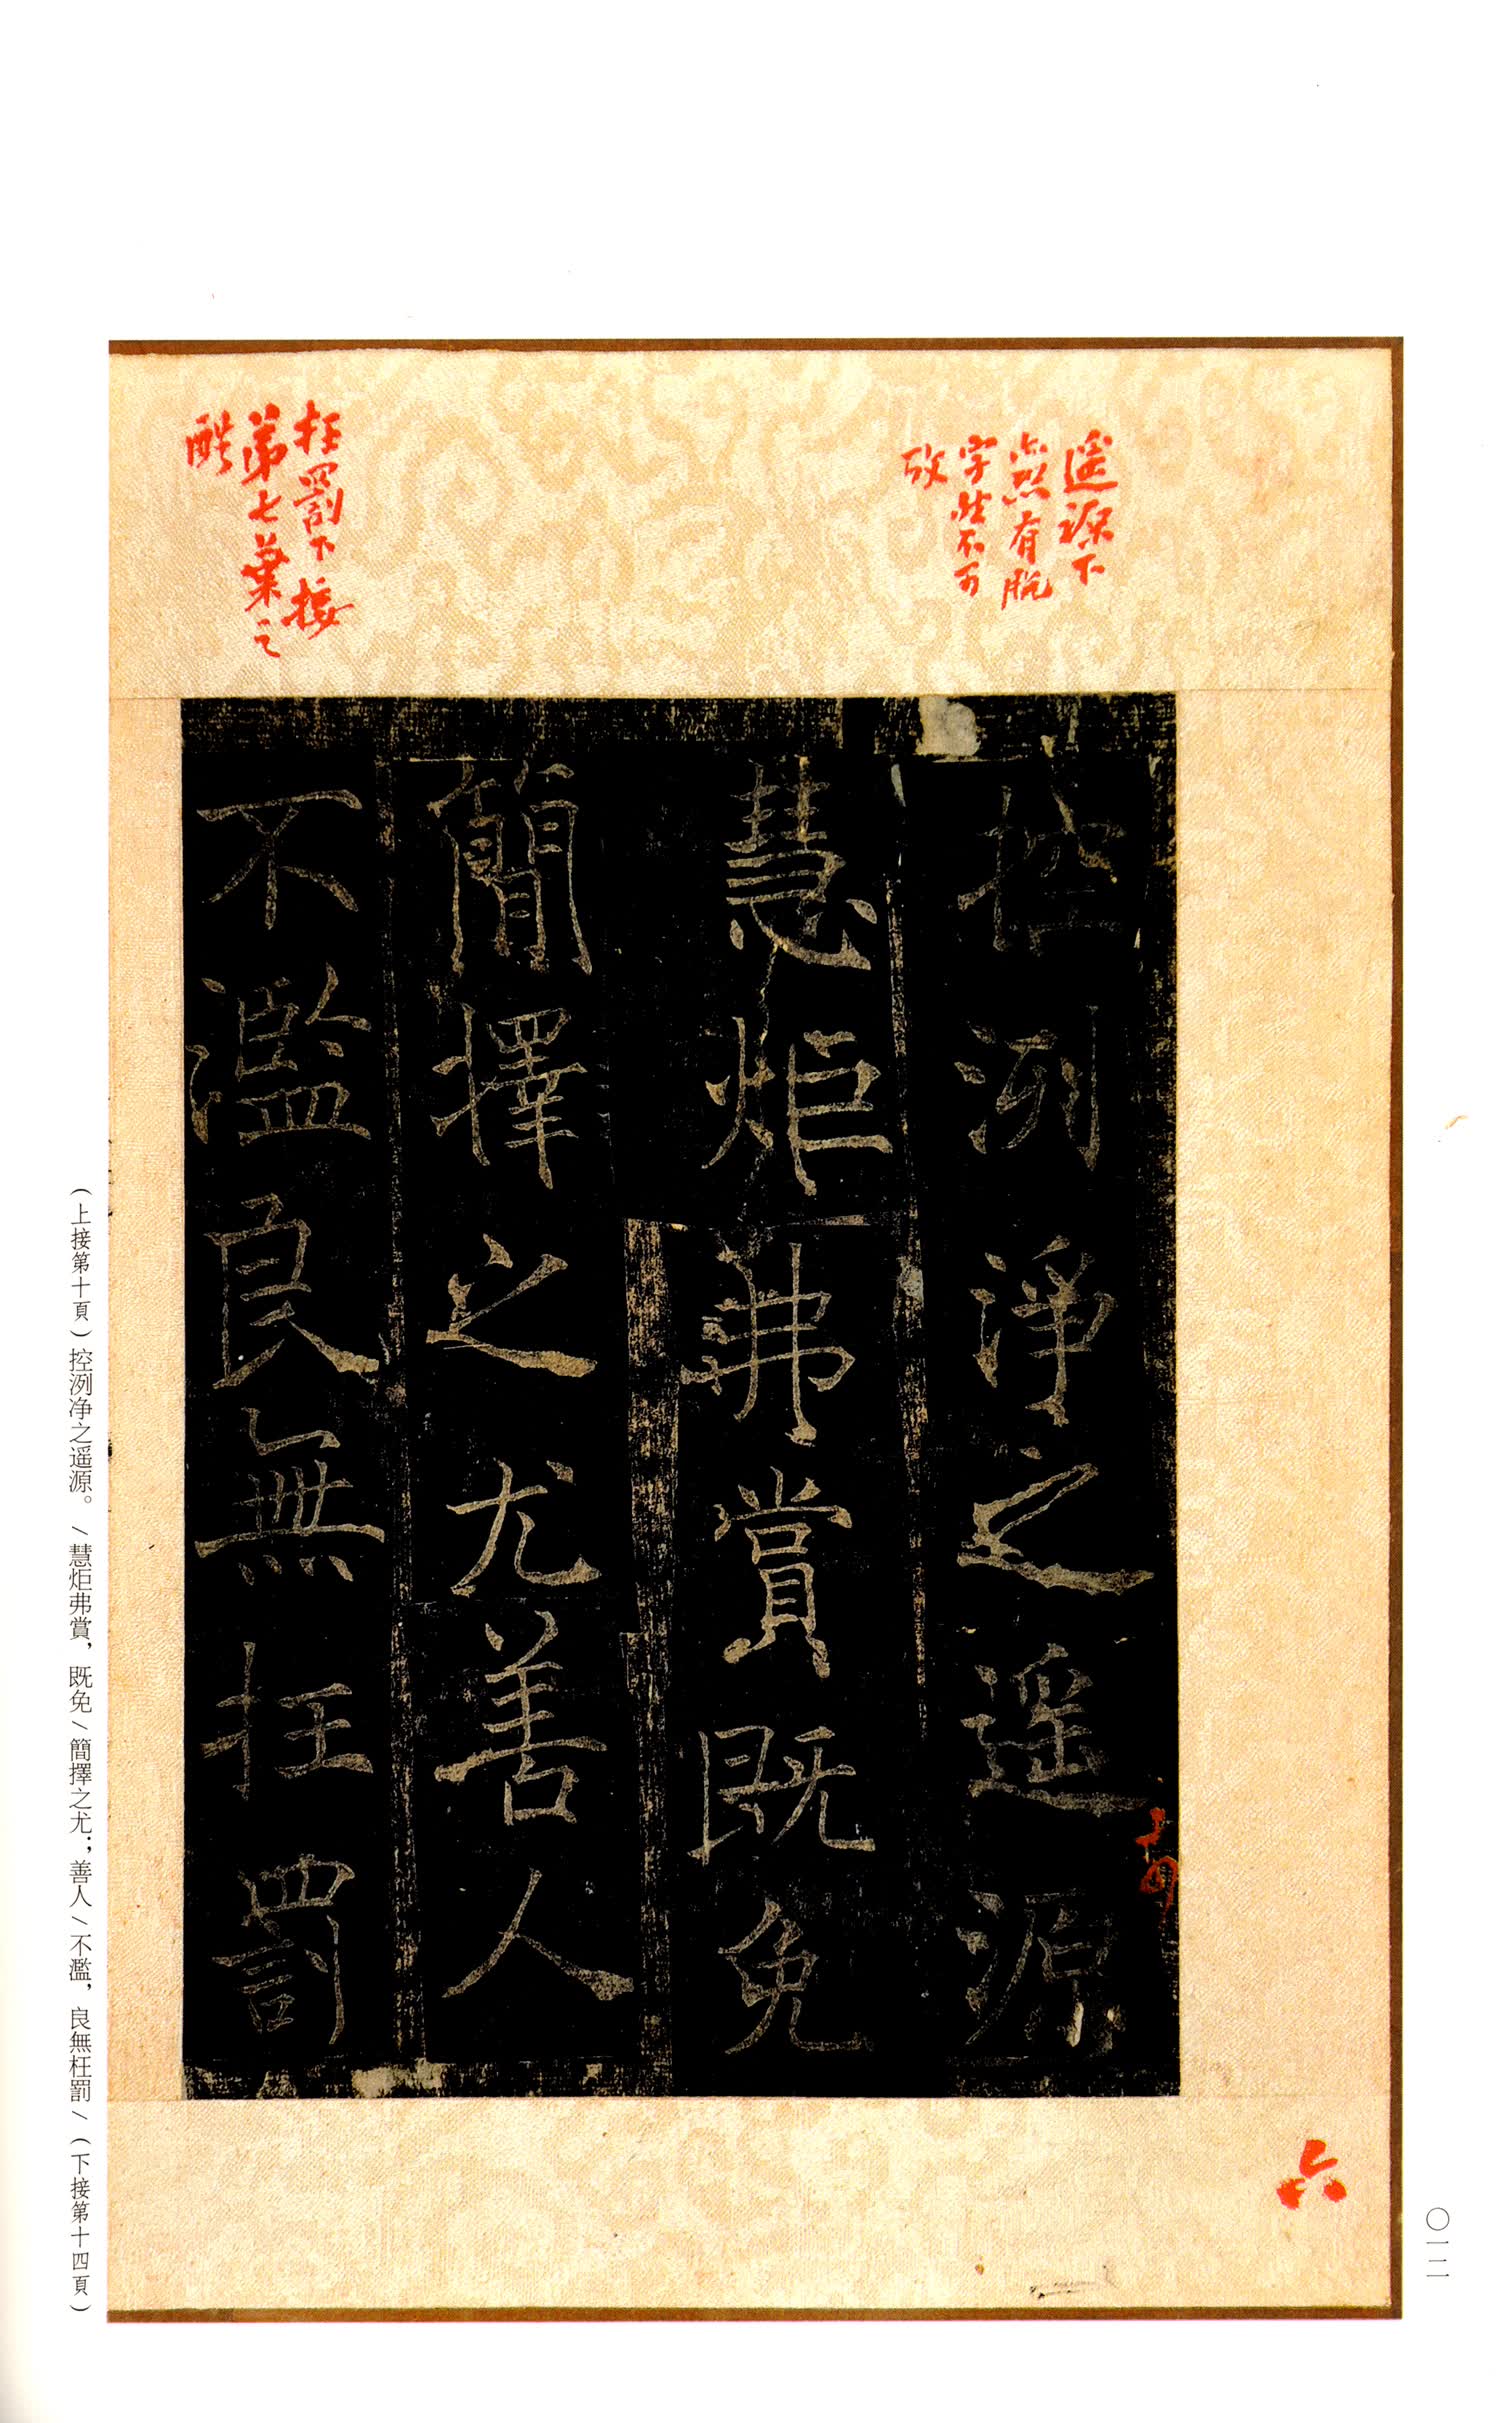 遥源下
點有脱
字惜不可
攷
枉罰下接
第七葉之
酷
控洌淨之遥源
慧炬弗賞既免
簡擇之尤善人
不濫良無枉罰
六
〇一二
(上接第十頁)控洌净之遥源。/慧炬弗賞,既免/簡擇之尤;善人/不濫,良無枉罰/(下接第十四頁)